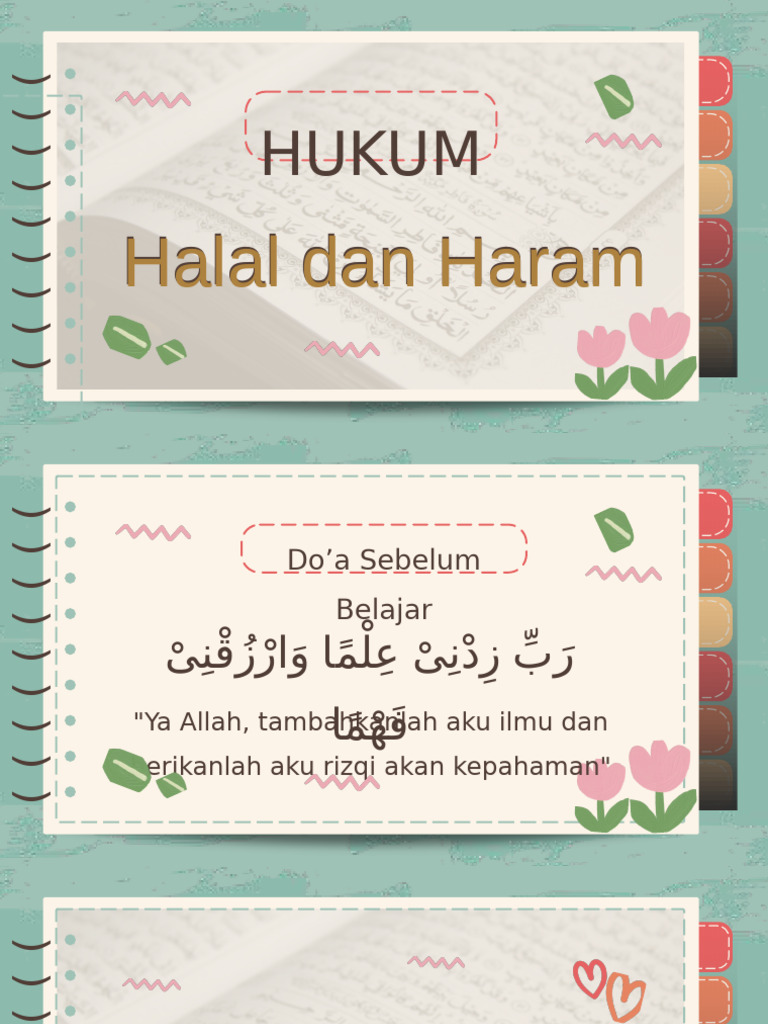 HUKUM
Halal dan Haram
Do’a Sebelum
Belajar
رَبِّ زِدْنِىْ عِلْمًا وَارْزُقْنِىْ
فَهْمًا
"Ya Allah, tambahkanlah aku ilmu dan
erikanlah aku rizqi akan kepahaman"